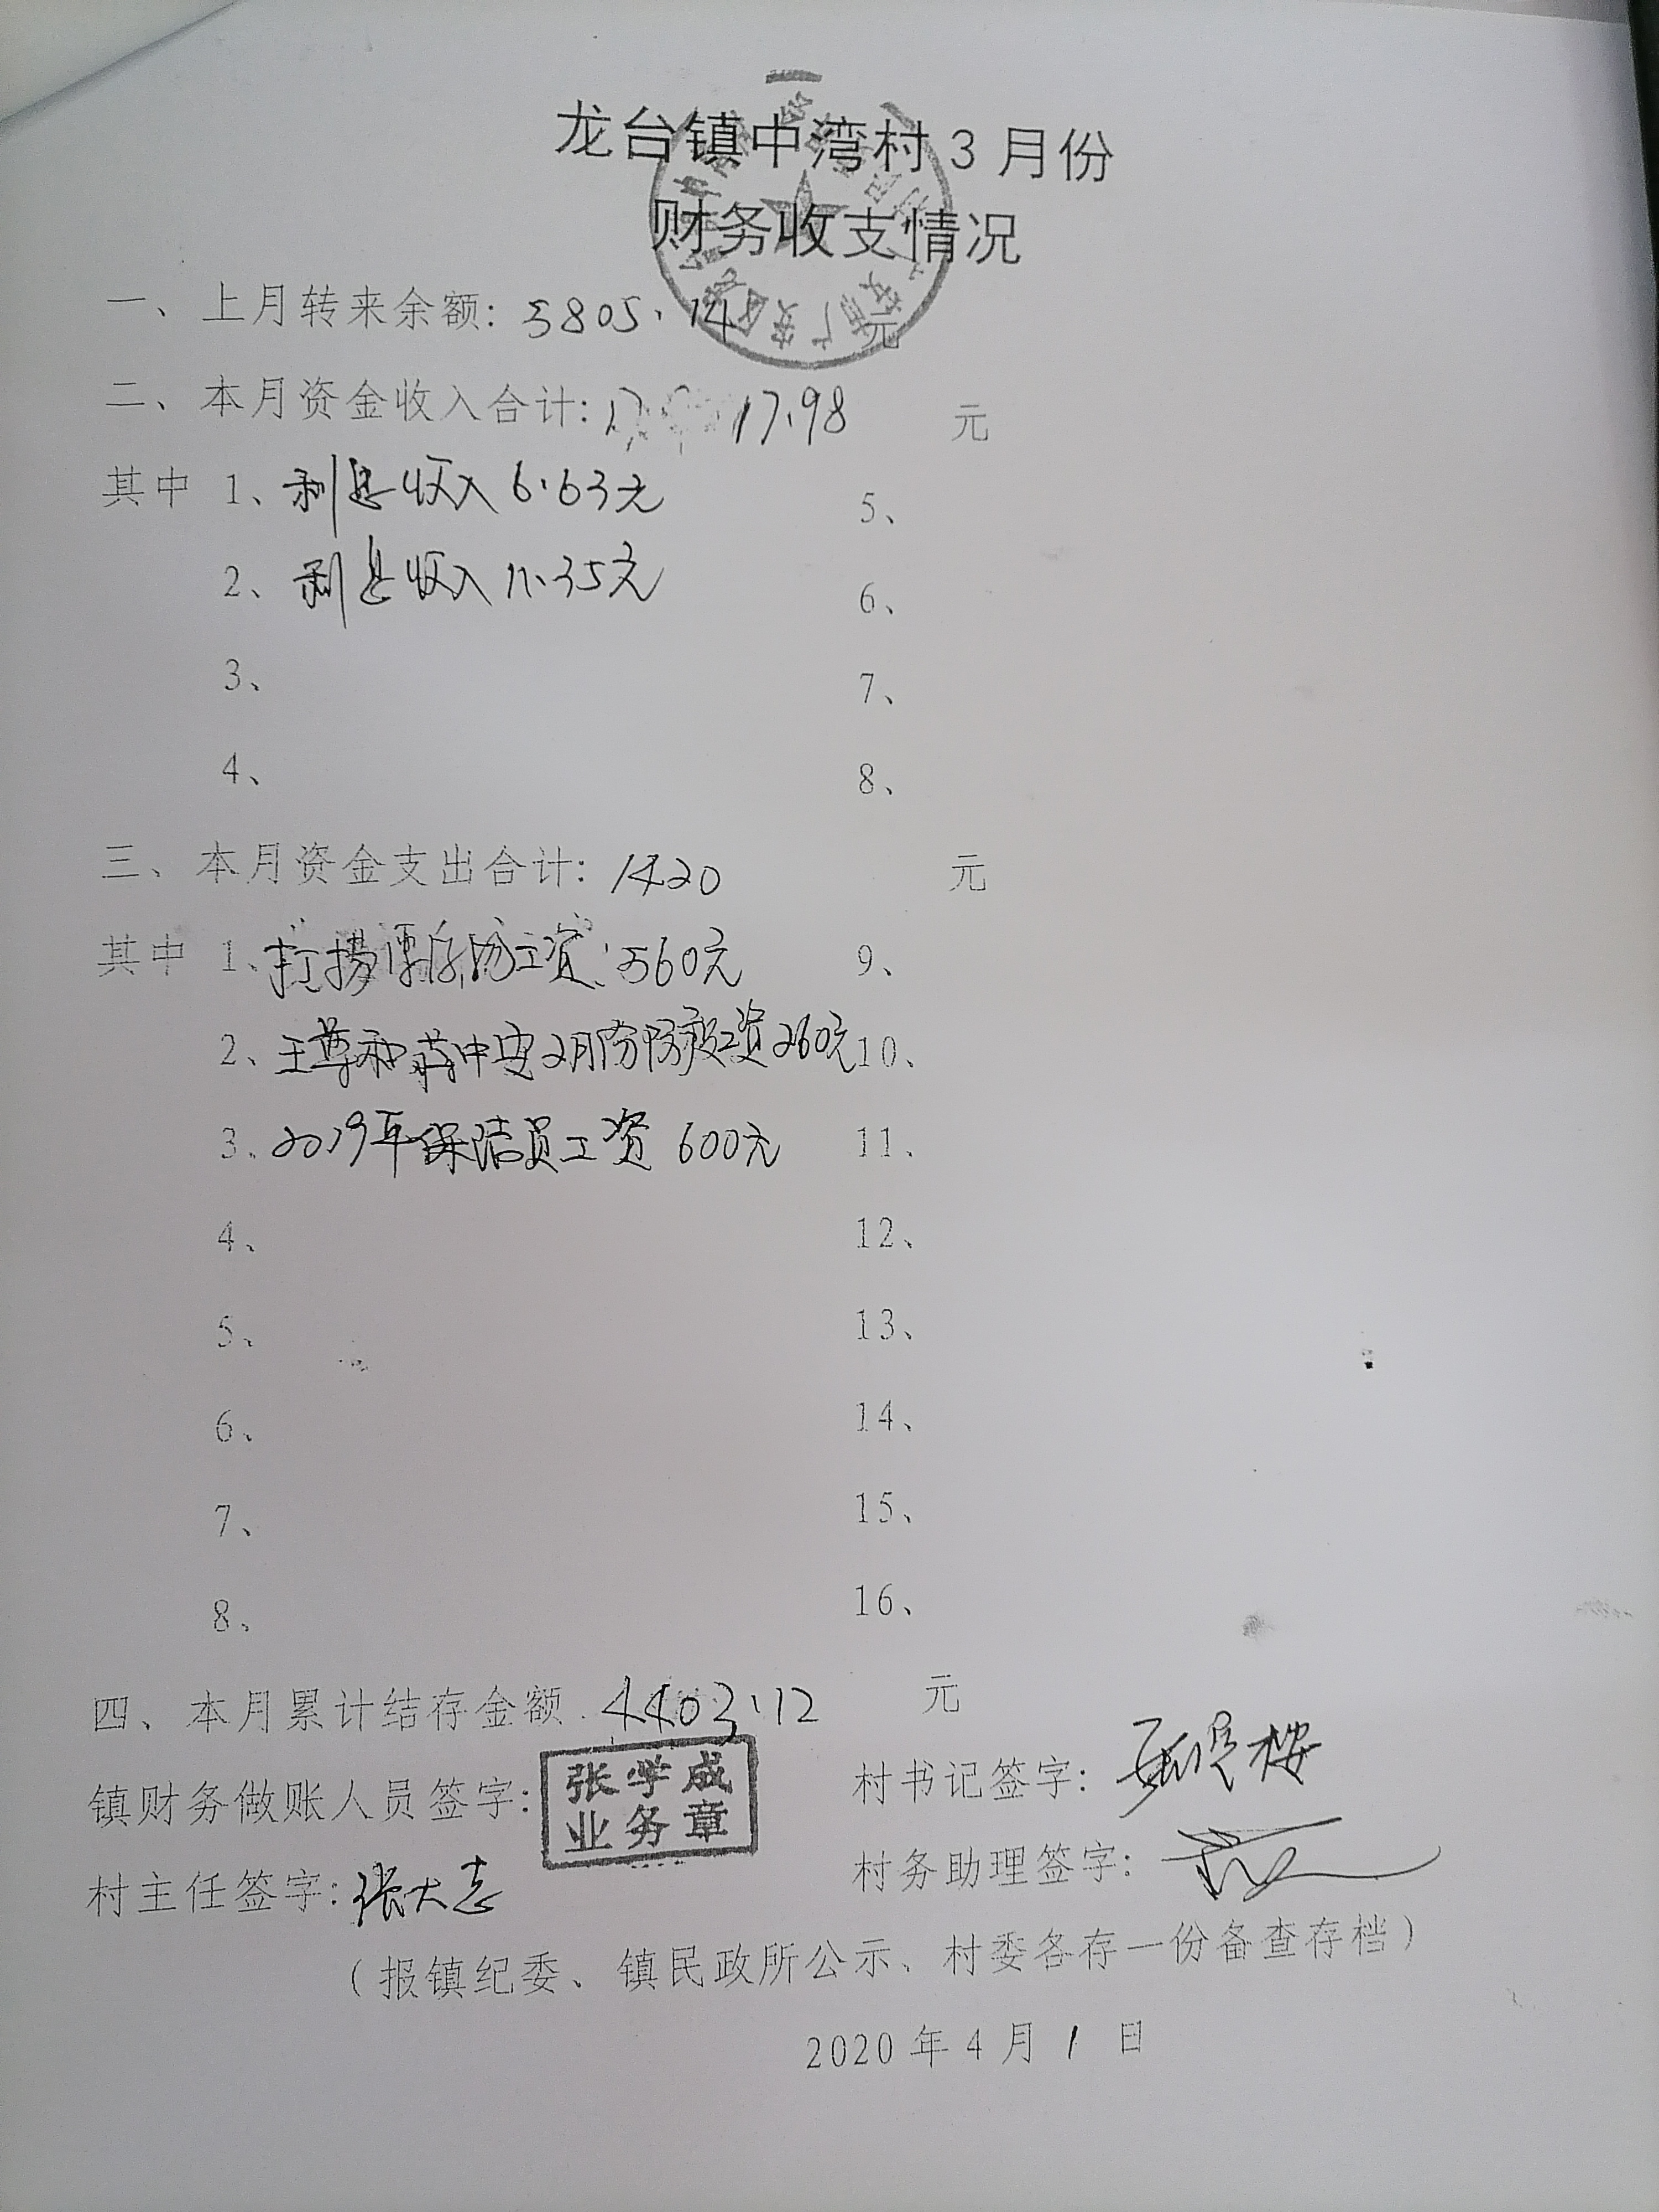 龙台镇中湾村3月份
财务收支情况
一、上月转来余额: 5805.14 元
二、本月资金收入合计: 17.98 元
其中 1、利息收入6.63元 5、
2、利息收入11.35元 6、
3、 7、
4、 8、
三、本月资金支出合计: 1420 元
其中 1、打捞漂浮物工资:560元 9、
2、王尊和蒋中安2月份防疫工资260元 10、
3、2019年保洁员工资 600元 11、
4、 12、
5、 13、
6、 14、
7、 15、
8、 16、
四、本月累计结存金额: 4403.12 元
镇财务做账人员签字: 张学成 村书记签字:
业务章
村主任签字: 张大志 村务助理签字:
(报镇纪委、镇民政所公示、村委各存一份备查存档)
2020年4月1日